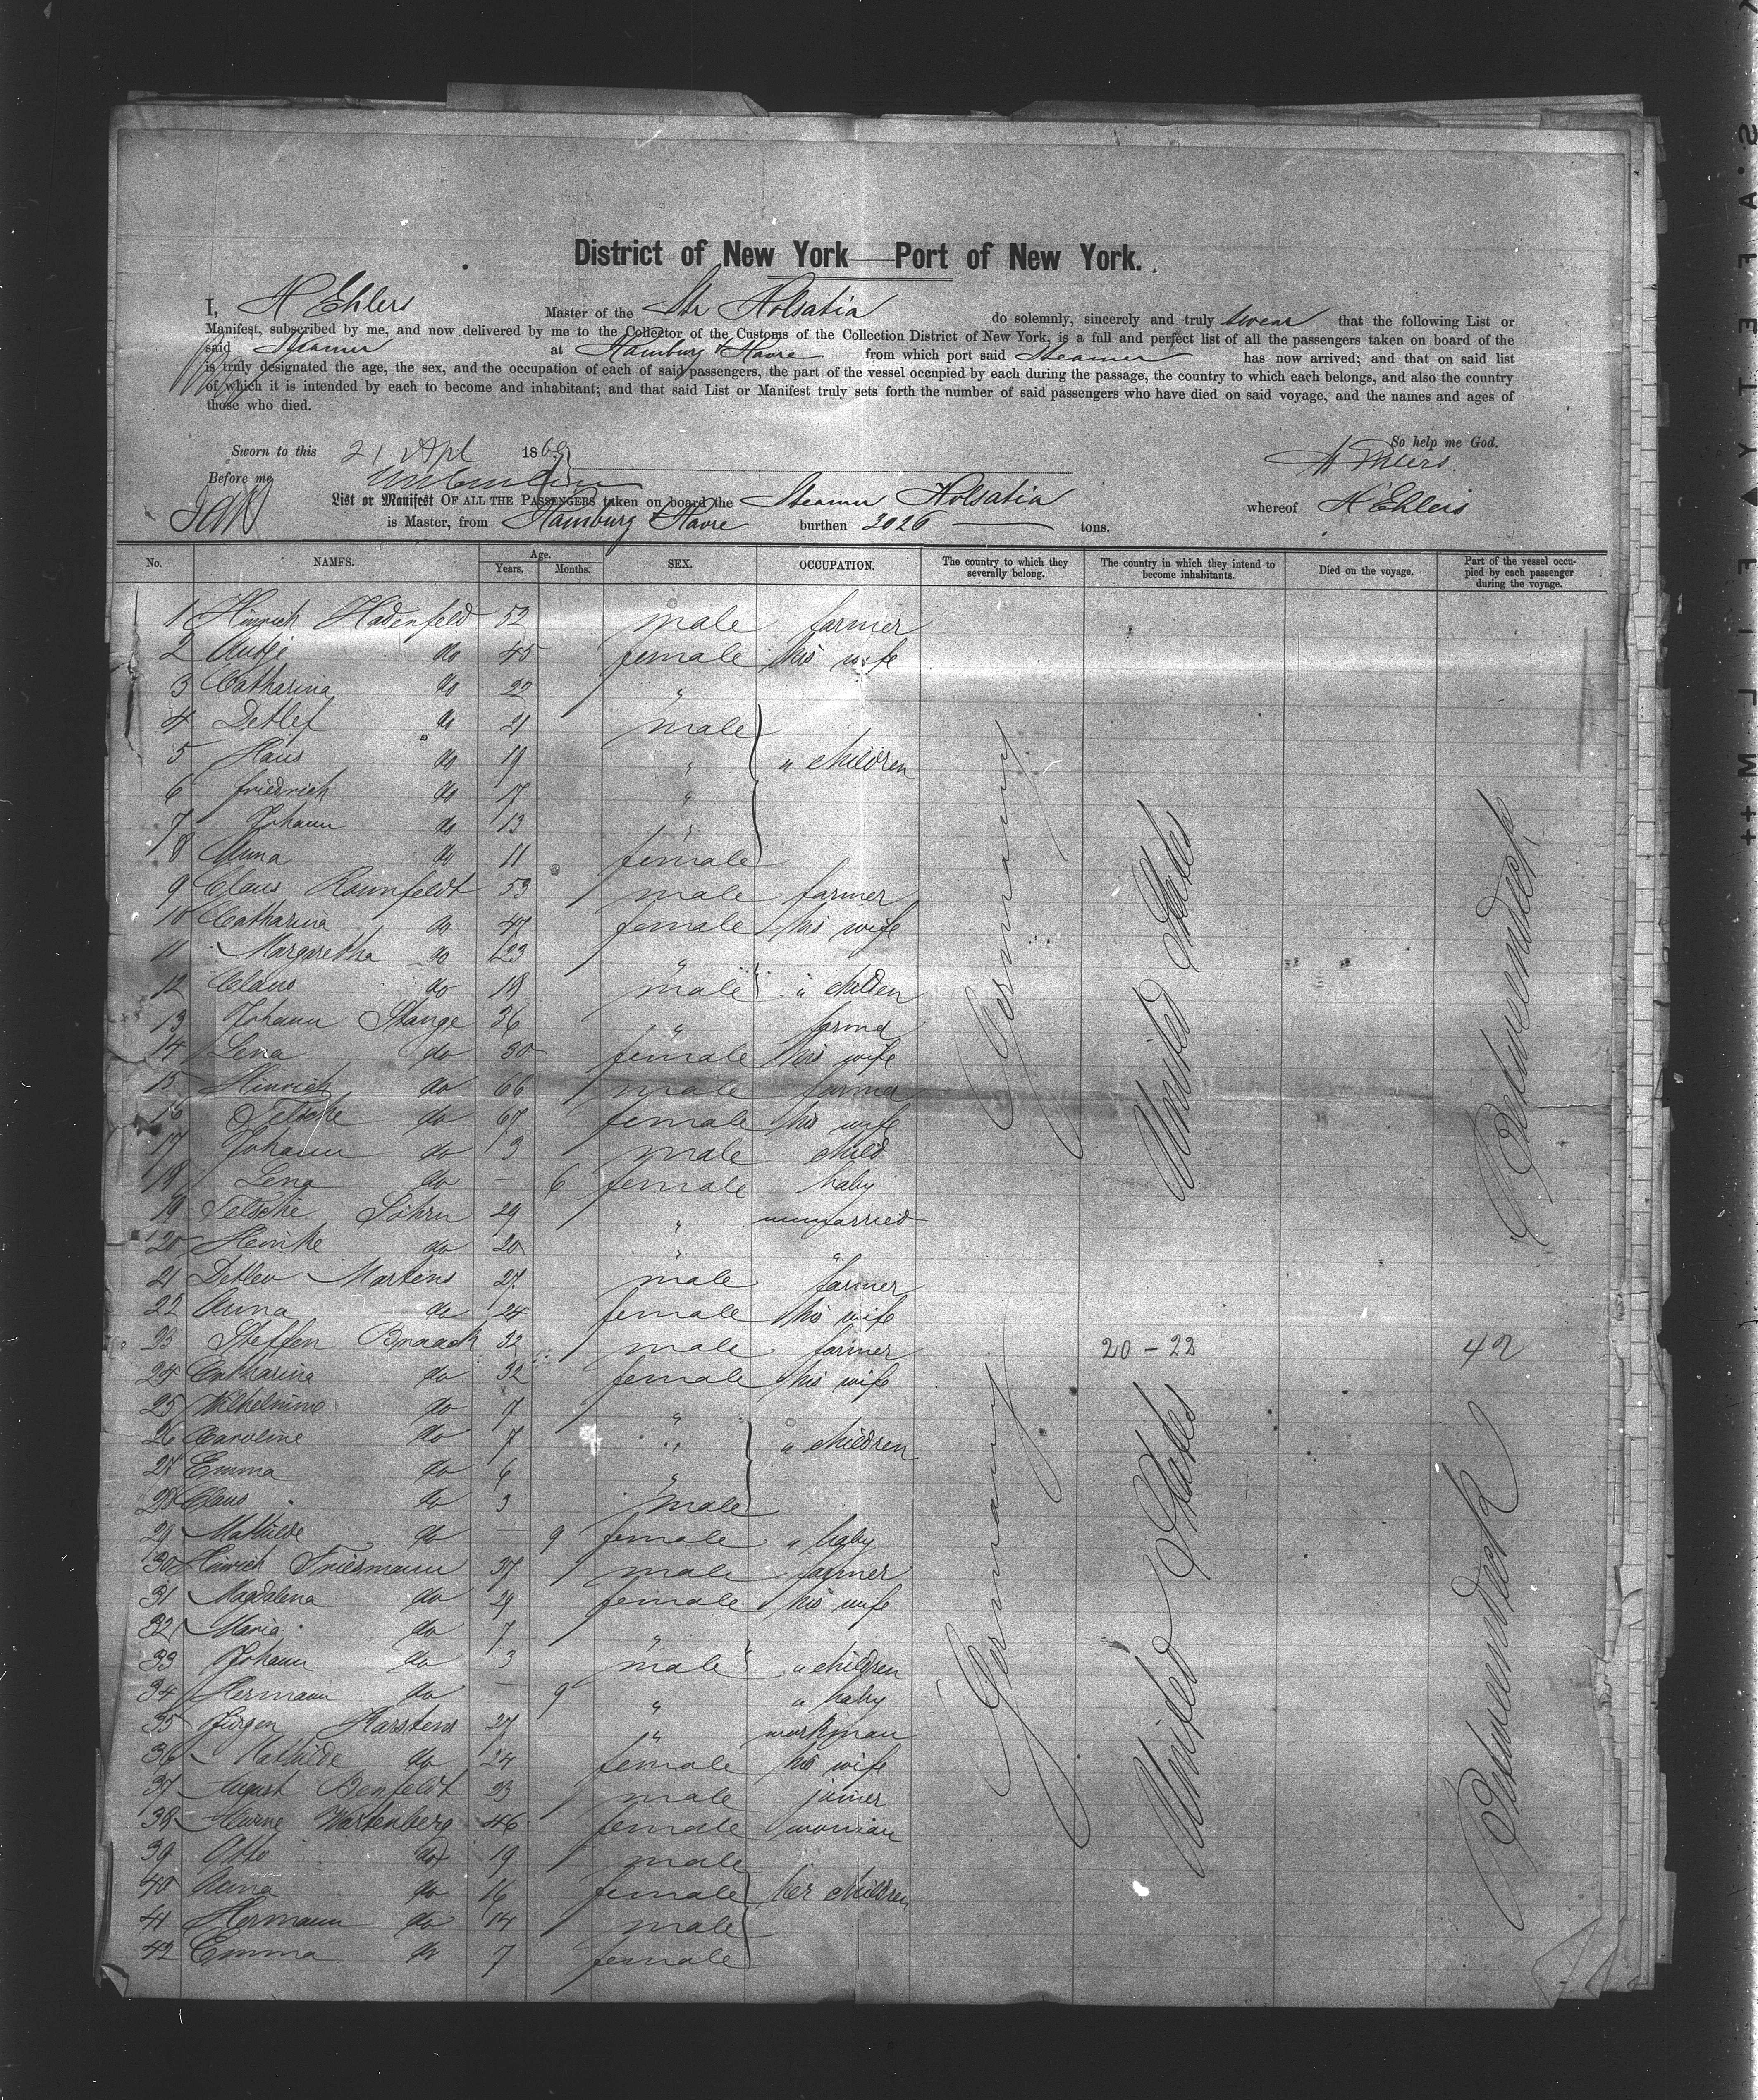 District of New York — Port of New York.
I, H Ehlers Master of the Str Holsatia do solemnly, sincerely and truly swear that the following List or
Manifest, subscribed by me, and now delivered by me to the Collector of the Customs of the Collection District of New York, is a full and perfect list of all the passengers taken on board of the
said Steamer at Hamburg & Havre from which port said Steamer has now arrived; and that on said list
is truly designated the age, the sex, and the occupation of each of said passengers, the part of the vessel occupied by each during the passage, the country to which each belongs, and also the country
of which it is intended by each to become and inhabitant; and that said List or Manifest truly sets forth the number of said passengers who have died on said voyage, and the names and ages of
those who died.
So help me God.
Sworn to this 21 Apl 1869
H Ehlers
Before me
List or Manifest OF ALL THE PASSENGERS taken on board the Steamer Holsatia whereof H Ehlers
is Master, from Hamburg & Havre burthen 3026 tons.
No. NAMES. Age. Years. Months. SEX. OCCUPATION. The country to which they severally belong. The country in which they intend to become inhabitants. Died on the voyage. Part of the vessel occupied by each passenger during the voyage.
1 Hinrich Hadenfeld 52 male farmer
2 Antje do 45 female his wife
3 Catharina do 22 "
4 Detlef do 21 male
5 Hans do 19 " " children
6 Friedrich do 17 "
7 Johann do 13 "
8 Anna do 11 female
9 Claus Rounfeldt 53 male farmer
10 Catharina do 47 female his wife
11 Margaretha do 23 "
12 Claus do 18 male " children
13 Johann Stange 36 " farmer
14 Lena do 30 female his wife
15 Hinrich do 66 male farmer
16 Telsche do 67 female his wife
17 Johann do 3 male child
18 Lena do — 6 female baby
19 Telsche Söhrn 29 " unmarried
20 Heinke do 20 " "
21 Detlev Martens 27 male farmer
22 Anna do 24 female his wife
23 Steffen Braack 32 male farmer 20-22 42
24 Catharina do 32 female his wife
25 Wilhelmine do 7 "
26 Caroline do 7 " " children
27 Emma do 6 "
28 Claus do 3 male
29 Mathilde do — 9 female " baby
30 Hinrich Friesmann 37 male farmer
31 Magdalena do 29 female his wife
32 Maria do 7 "
33 Johann do 3 male " children
34 Hermann do — 9 " " baby
35 Jürgen Karstens 27 " workman
36 Mathilde do 24 female his wife
37 August Benfeldt 23 male joiner
38 Wartenberg 46 female woman
39 Otto do 19 male
40 Anna do 16 female her children
41 Hermann do 14 male
42 Emma do 7 female
Germany
United States
Betweendeck
Germany
United States
Betweendeck